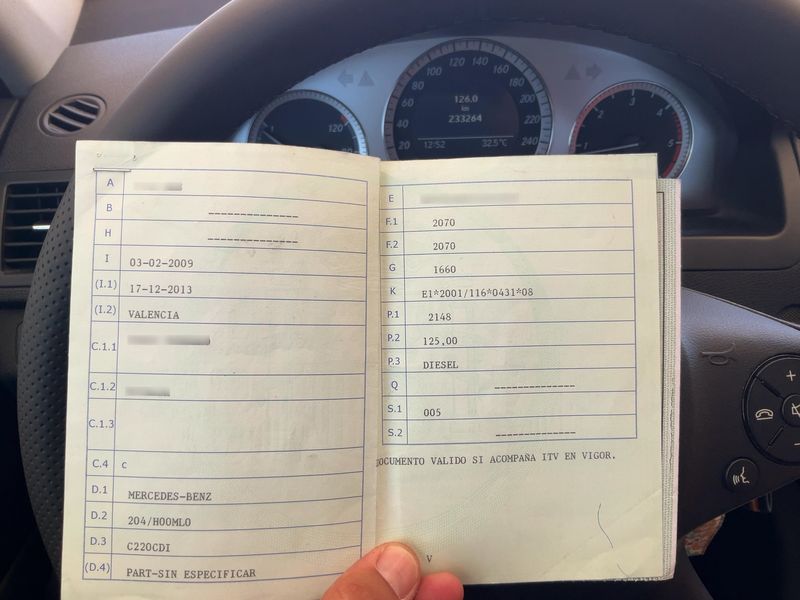 120
20
40
60
80
100
120
140
160
180
200
220
240
126.0
km
233264
12:52
32.5°C
1
2
3
4
5
A
B --------------
H --------------
I 03-02-2009
(I.1) 17-12-2013
(I.2) VALENCIA
C.1.1
C.1.2
C.1.3
C.4 C
D.1 MERCEDES-BENZ
D.2 204/H00ML0
D.3 C220CDI
(D.4) PART-SIN ESPECIFICAR
E
F.1 2070
F.2 2070
G 1660
K E1*2001/116*0431*08
P.1 2148
P.2 125,00
P.3 DIESEL
Q -------------
S.1 005
S.2 -------------
DOCUMENTO VALIDO SI ACOMPAÑA ITV EN VIGOR.
V
+